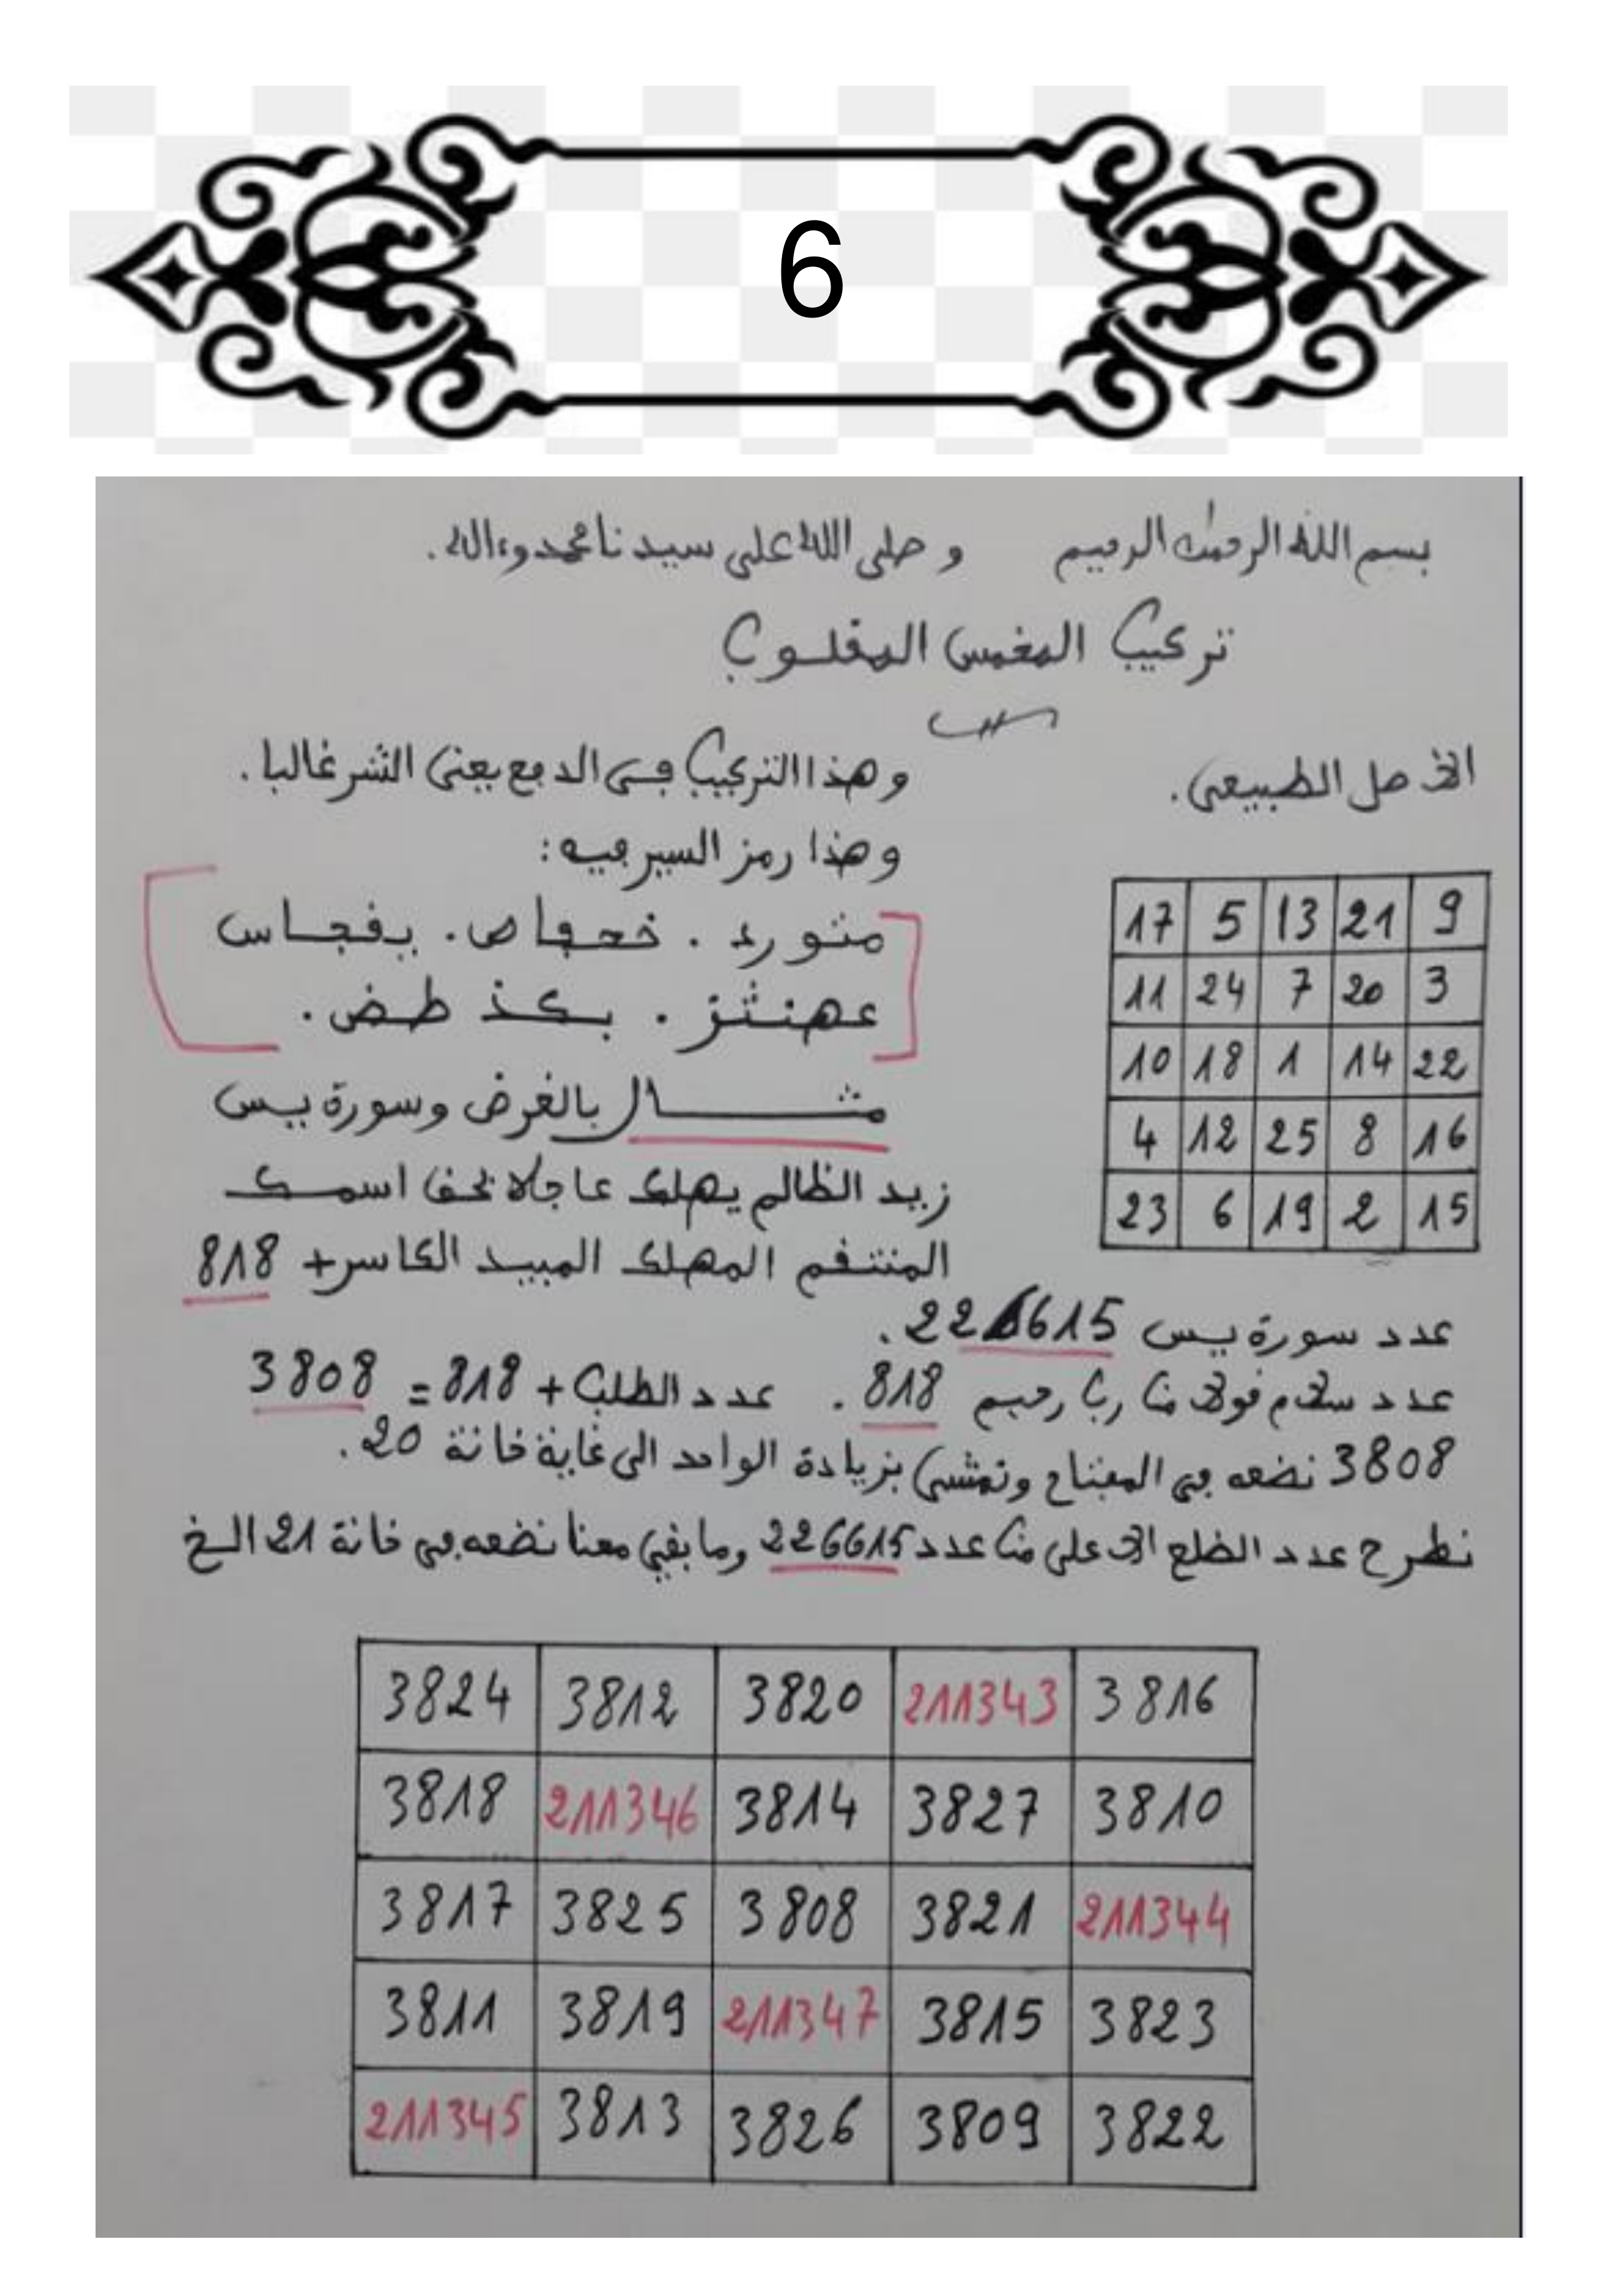 6
بسم الله الرحمن الرحيم وصلى الله على سيدنا محمد وءاله.
تركيب المخمس المقلوب
الأصل الطبيعي. وهذا التركيب في الدفع يعني الشر غالبا.
وهذا رمز السير فيه:
عهنثز . بكذ طض.
مثــال بالغرض وسورة يس
17 5 13 21 9
11 24 7 20 3
10 18 1 14 22
4 12 25 8 16
23 6 19 2 15
زيد الظالم يهلك عاجلا بحق اسمك
المنتقم المهلك المبيد الكاسر + 818
عدد سورة يس 226615.
عدد سلام قولا من رب رحيم 818. عدد الطلب + 818 = 3808
3808 نضعه في المفتاح ونمشي بزيادة الواحد الى غاية خانة 20.
نطرح عدد الضلع الأعلى من عدد 226615 وما بقي معنا نضعه في خانة 21 الخ
3824 3812 3820 211343 3816
3818 211346 3814 3827 3810
3817 3825 3808 3821 211344
3811 3819 211347 3815 3823
211345 3813 3826 3809 3822